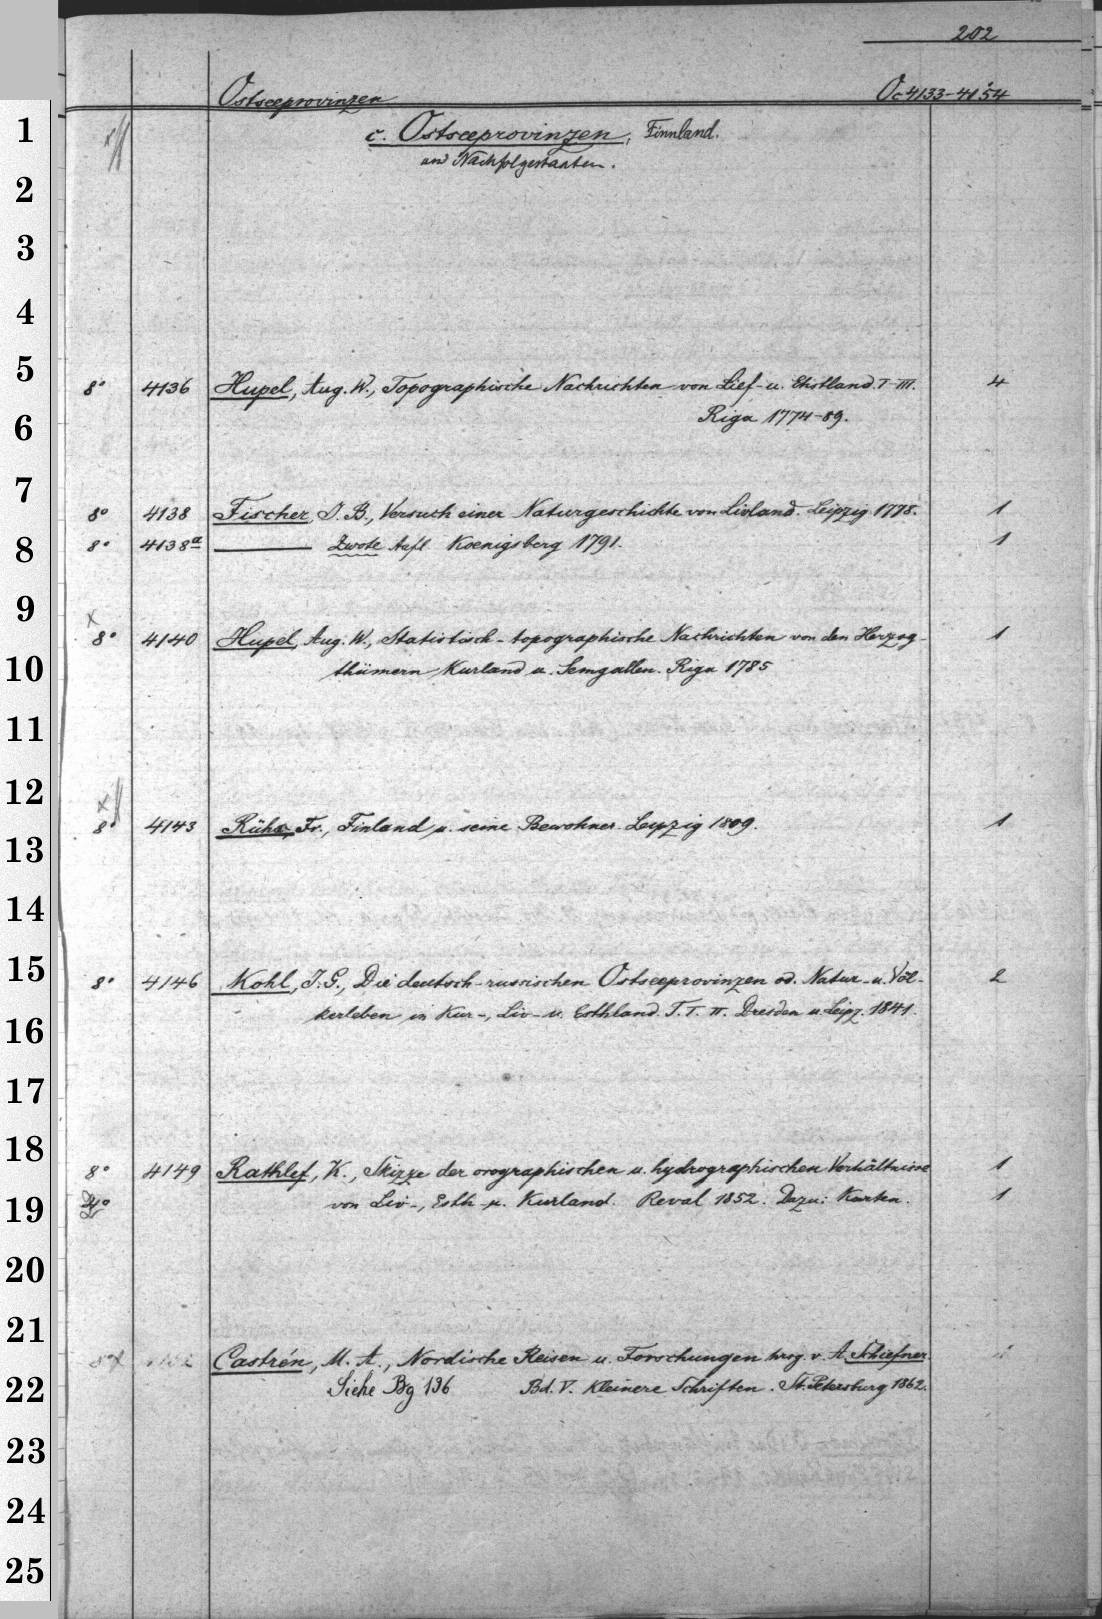 202
Ostseeprovinzen Oc 4133-4154
1 c. Ostseeprovinzen, Finnland.
und Nachfolgestaaten.
2
3
4
5 8° 4136 Hupel, Aug. W., Topographische Nachrichten von Lief- u. Ehstland. I-III. 4
6 Riga 1774-89.
7 8° 4138 Fischer, J. B., Versuch einer Naturgeschichte von Livland. Leipzig 1778. 1
8 8° 4138a Zwote Aufl Koenigsberg 1791. 1
9 x 8° 4140 Hupel, Aug. W., Statistisch-topographische Nachrichten von den Herzog- 1
10 thümern Kurland u. Semgallen. Riga 1785
11
12 x
13 8° 4143 Rühs, Fr., Finland u. seine Bewohner. Leipzig 1809. 1
14
15 8° 4146 Kohl, J. G., Die deutsch-russischen Ostseeprovinzen od. Natur- u. Völ- 2
16 kerleben in Kur-, Liv- u. Esthland. T. I. II. Dresden u. Leipz. 1841.
17
18 8° 4149 Rathlef, K., Skizze der orographischen u. hydrographischen Verhältnisse 1
19 von Liv-, Esth- u. Kurland. Reval 1852. Dazu: Karten. 1
20
21 8° x Castrén, M. A., Nordische Reisen u. Forschungen hrsg. v. A. Schiefner.
22 Siehe Bg 136 Bd. V. Kleinere Schriften. St. Petersburg 1862.
23
24
25